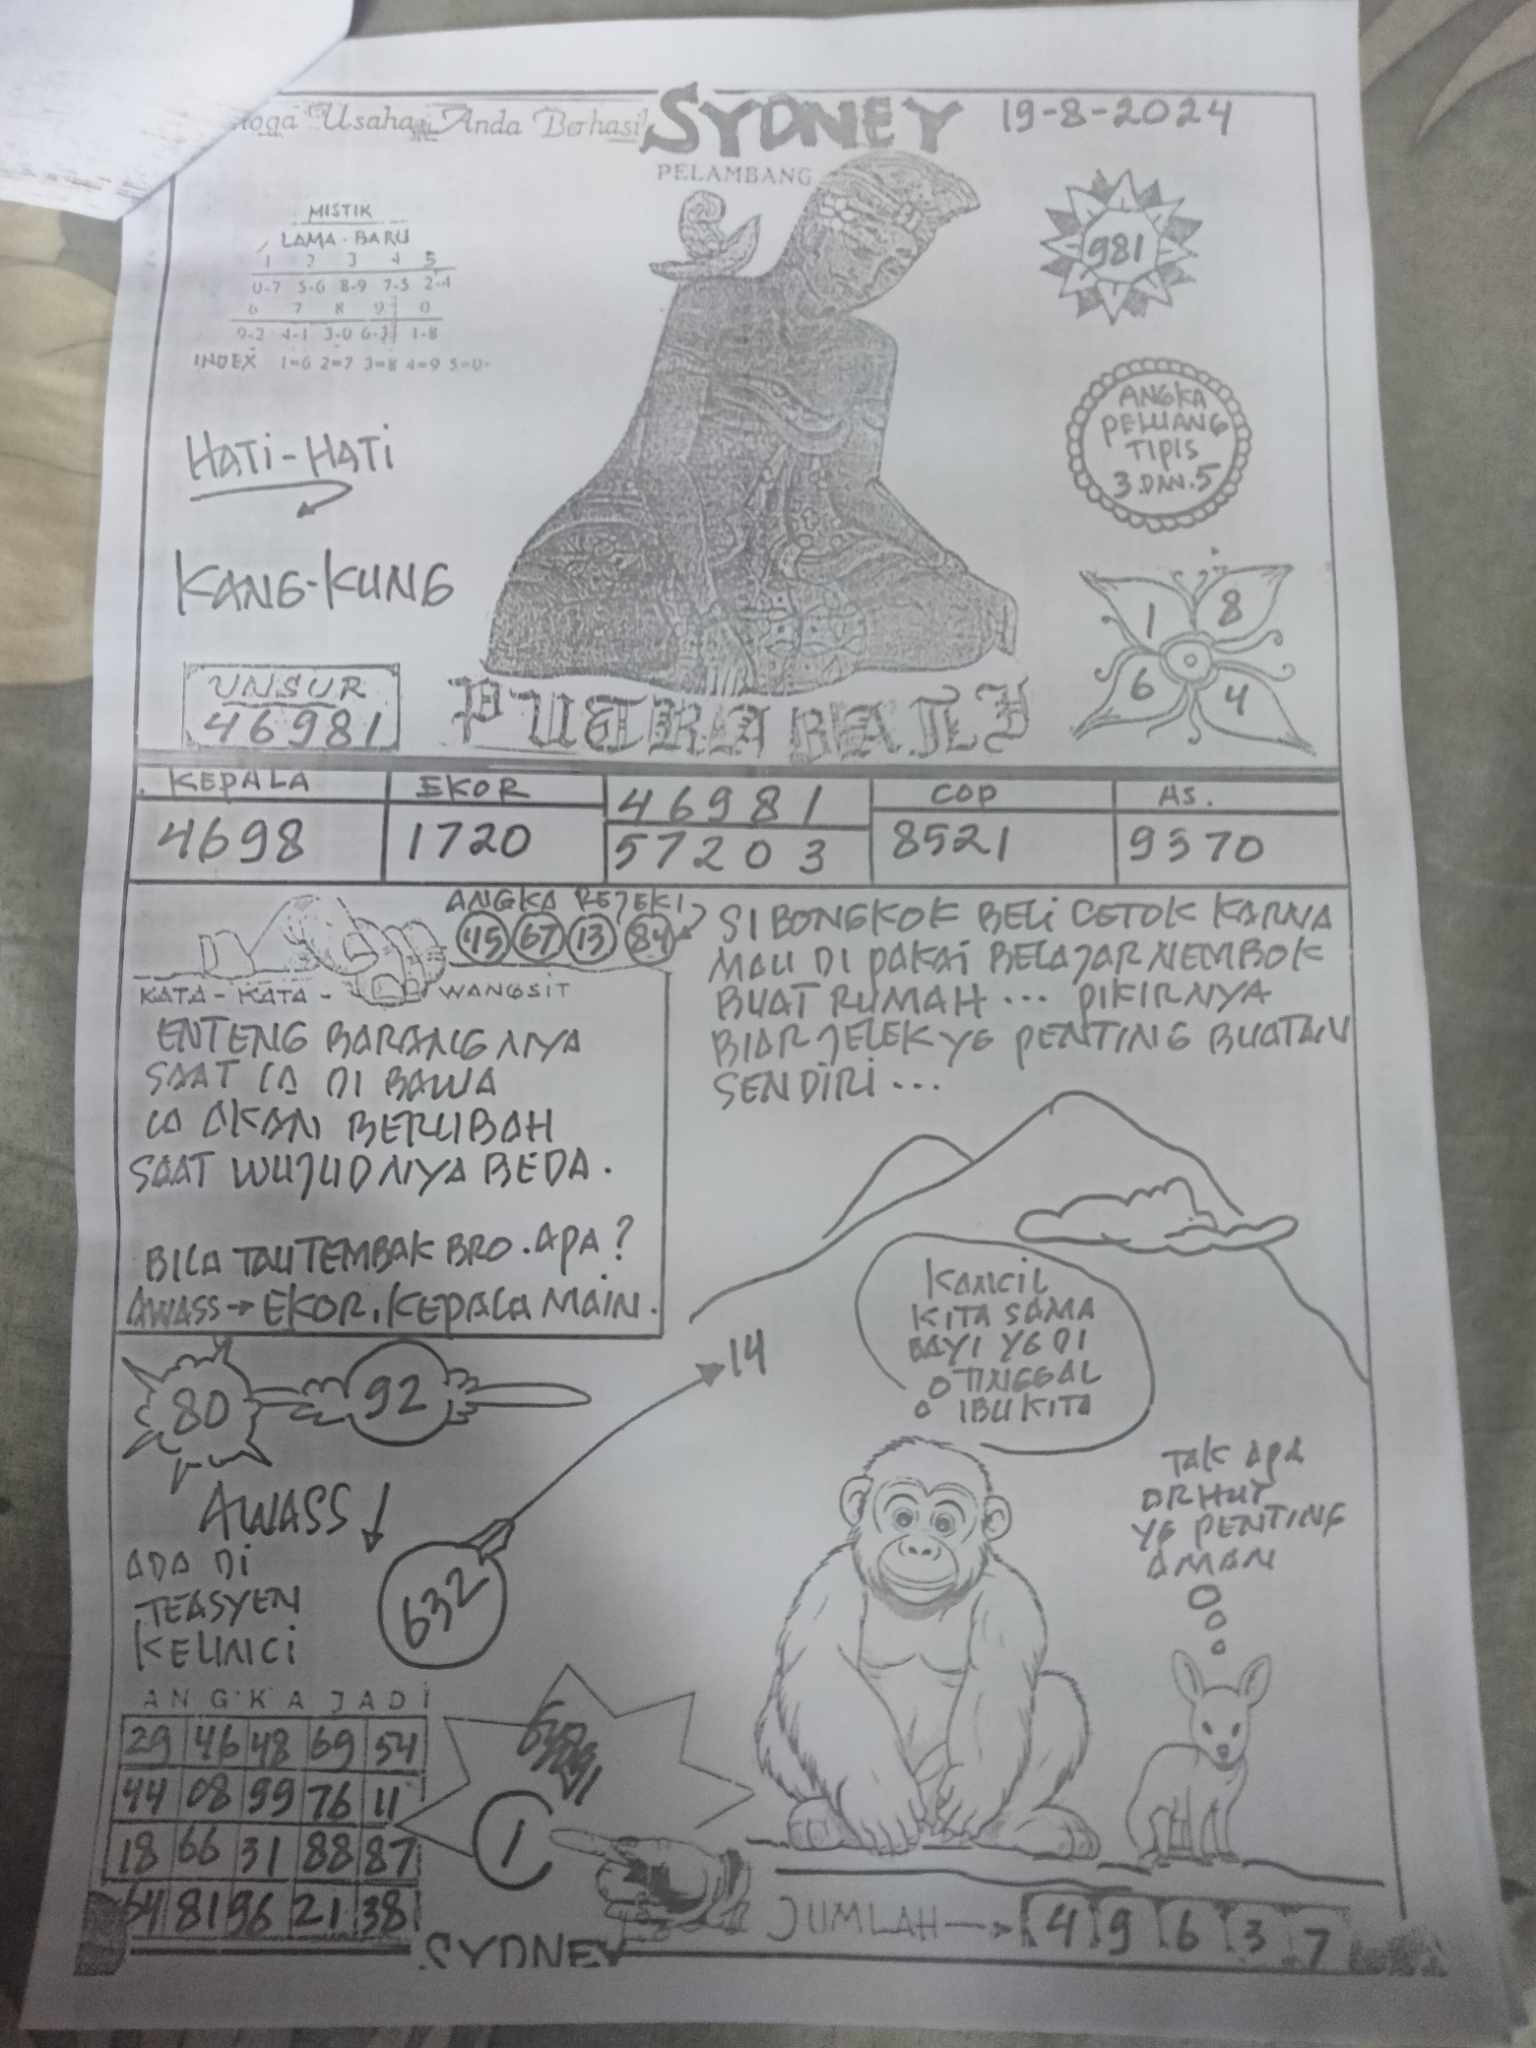 Usaha Anda Berhasil
SYDNEY
19-8-2024
PELAMBANG
MISTIK
LAMA - BARU
1 2 3 4 5
0-7 5-6 8-9 7-3 2-4
6 7 8 9 0
9-2 4-1 3-0 6-3 1-8
INDEX 1=6 2=7 3=8 4=9 5=0
981
HATI-HATI
ANGKA
PELUANG
TIPIS
3 DAN 5
KANG-KUNG
1 8
6 4
UNSUR
46981
PUTRA BALI
KEPALA
4698
EKOR
1720
46981
57203
COP
8521
AS.
9370
ANGKA REJEKI
45 67 13 84
KATA-KATA - WANGSIT
ENTENG BARANG NYA
SAAT IA DI BAWA
IA AKAN BERUBAH
SAAT WUJUDNYA BEDA.
BILA TAU TEMBAK BRO. APA?
AWASS → EKOR. KEPALA MAIN.
SI BONGKOK BELI CETOK KARNA
MAU DI PAKAI BELAJAR NEMBOK
BUAT RUMAH ... PIKIRNYA
BIAR JELEK YG PENTING BUATAN
SENDIRI ...
80 92
14
AWASS
ADA DI
TEASYEN
KELINCI
632
KANCIL
KITA SAMA
BAYI YG DI
TINGGAL
IBU KITA
TAK APA
ORHUT
YG PENTING
AMAN
ANGKA JADI
29 46 48 69 54
44 08 99 76 11
18 66 31 88 87
64 81 96 21 38
1
SYDNEY
JUMLAH → 4 9 6 3 7